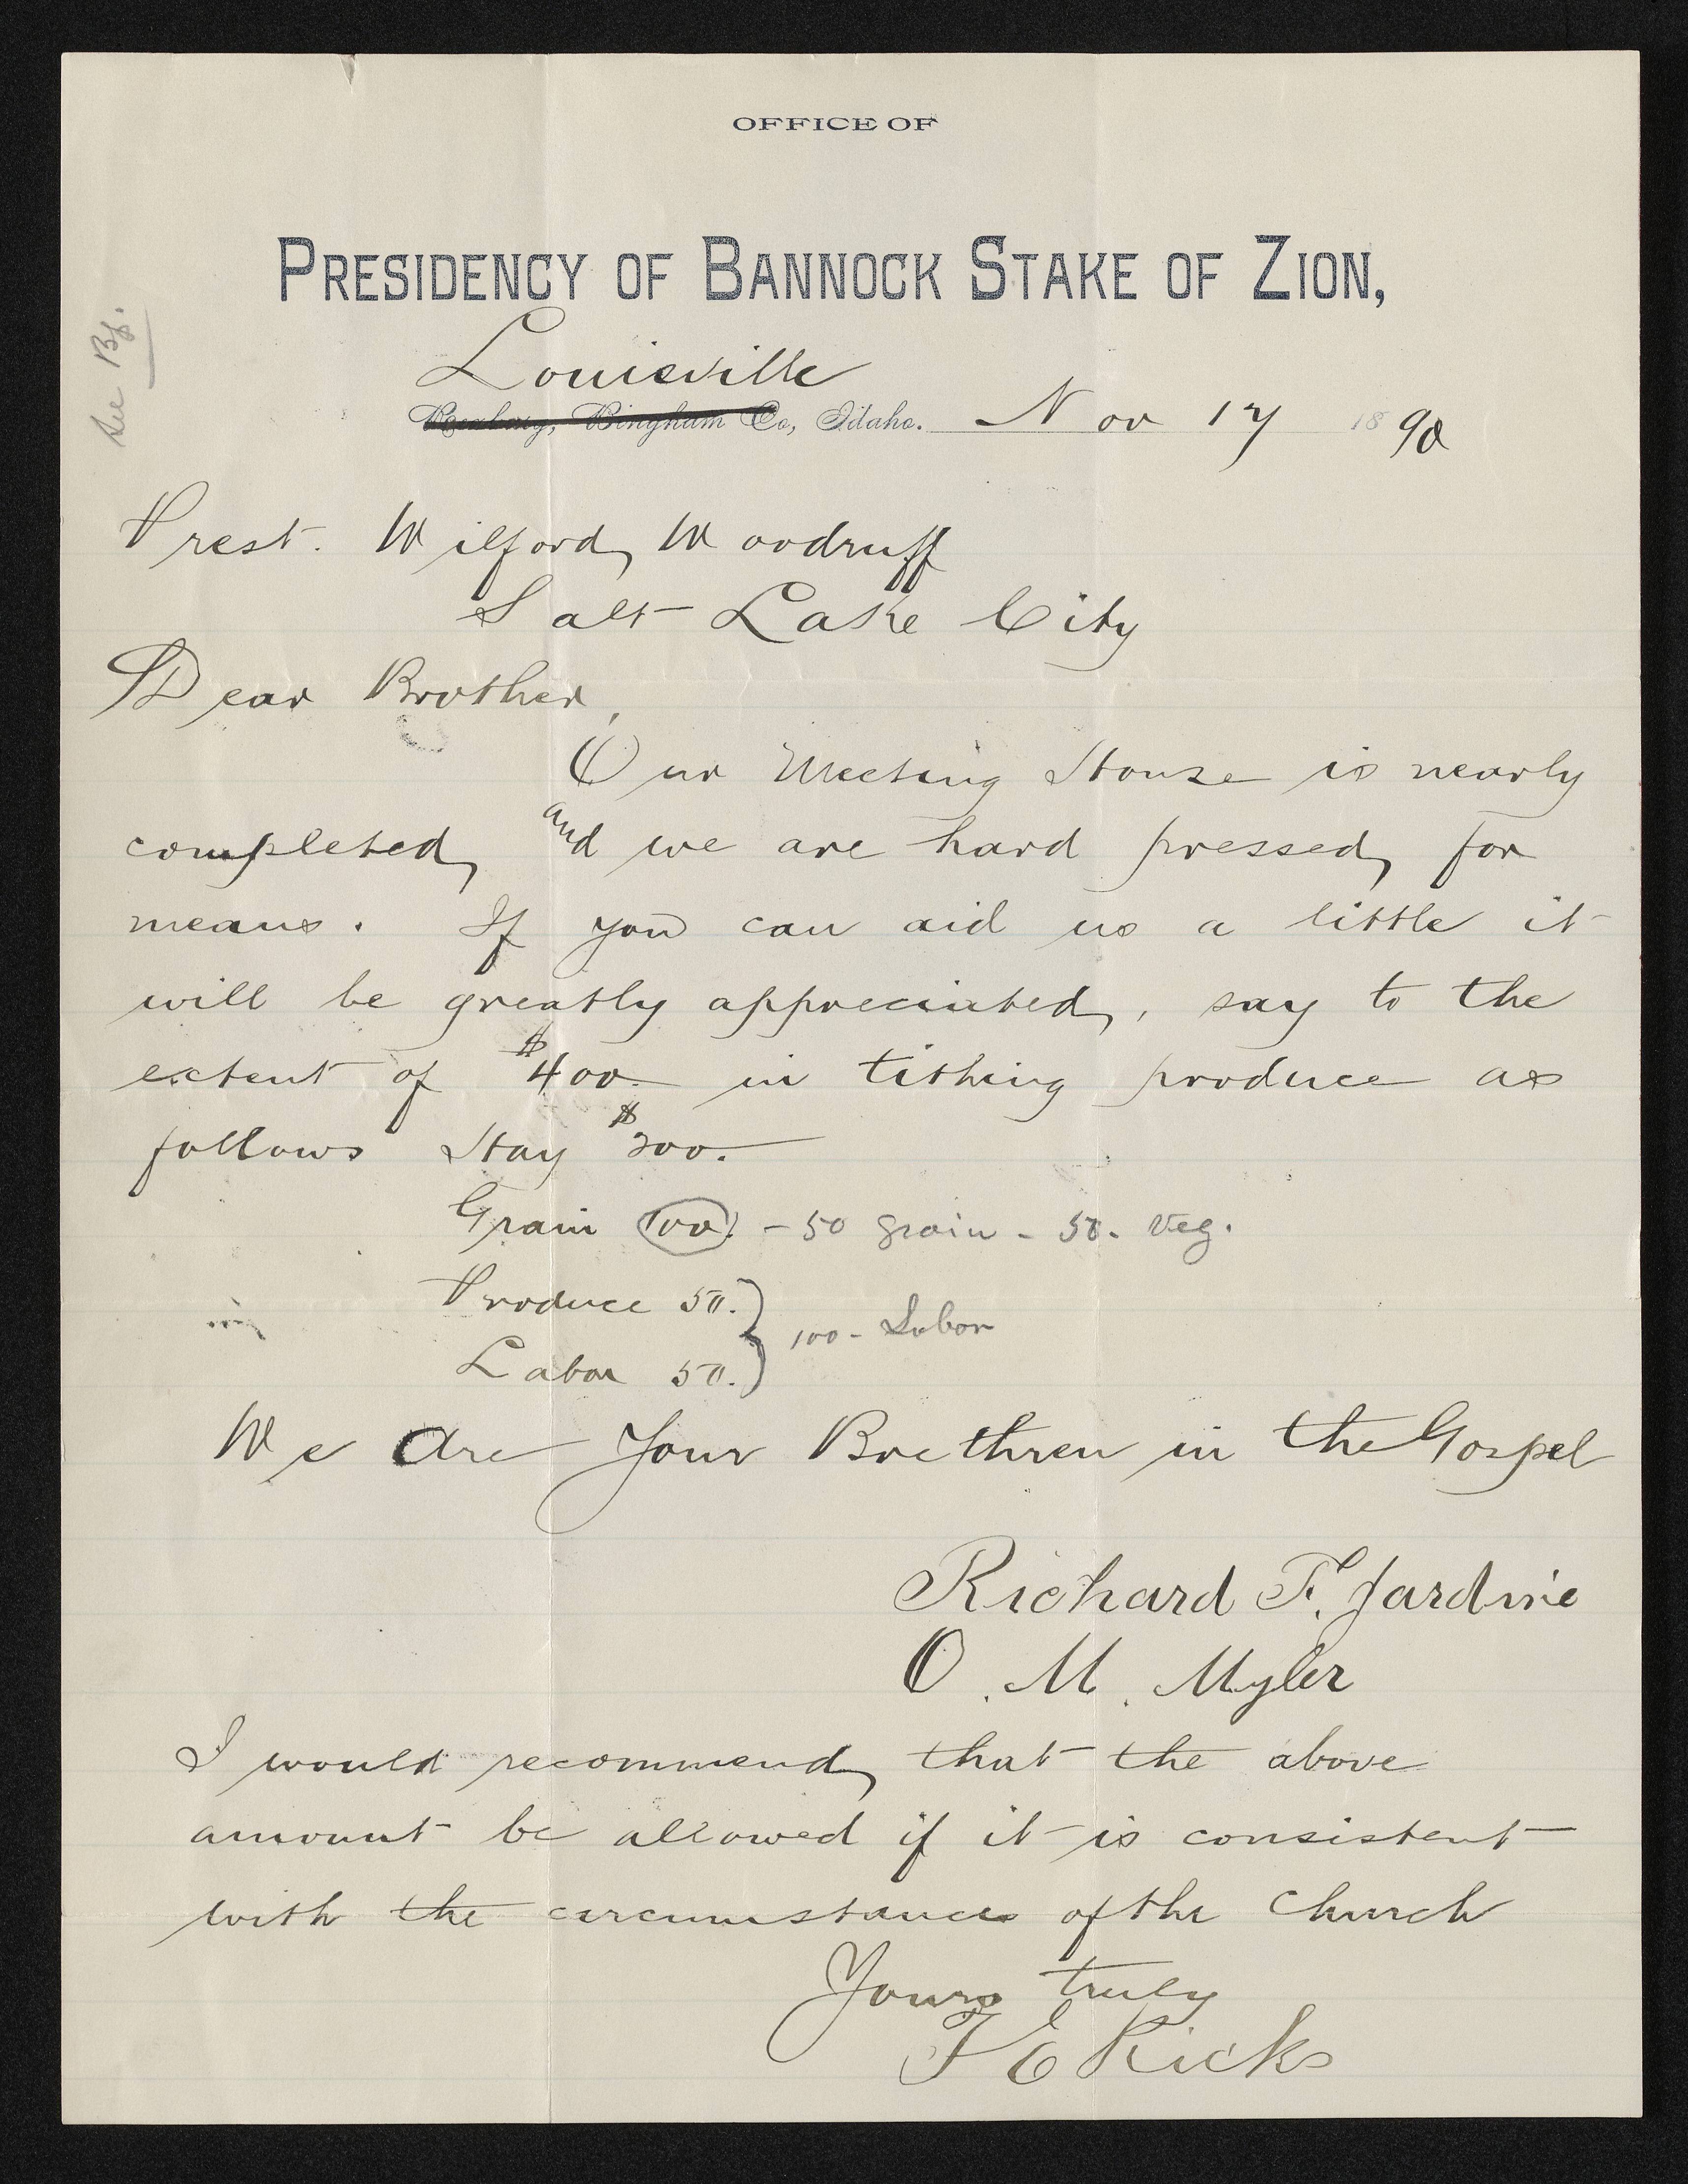 OFFICE OF
PRESIDENCY OF BANNOCK STAKE OF ZION,
Louisville
Rexburg, Bingham Co, Idaho. Nov 17 1890
See Bf.
Prest. Wilford Woodruff
Salt Lake City
Dear Brother,
Our Meeting House is nearly
completed, and we are hard pressed for
means. If you can aid us a little it
will be greatly appreciated, say to the
extent of $400. in tithing produce as
follows Hay $200.
Grain 100. - 50 grain - 50. Veg.
Produce 50. } 100 - Labor
Labor 50. }
We Are Your Brethren in the Gospel
Richard F. Jardine
O. M. Myler
I would recommend that the above
amount be allowed if it is consistent
with the circumstances of the Church
Yours truly
T E Ricks